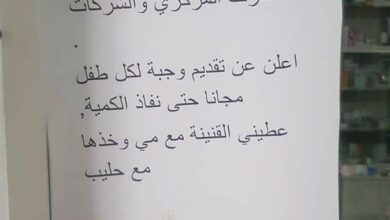 المركزي والشركات
.
اعلن عن تقديم وجبة لكل طفل
مجانا حتى نفاذ الكمية,
عطيني القنينة مع مي وخذها
مع حليب